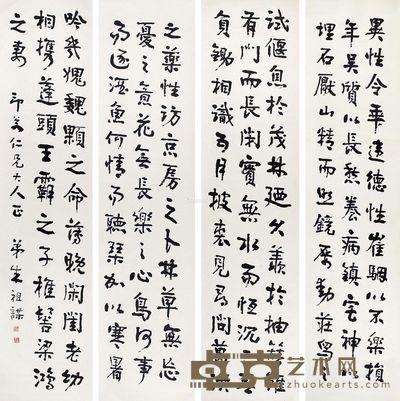 異性令乖違德性崔駰以不樂損
年吳質以長愁養病鎮宅神
埋石厭山精而照鏡屢動莊舄
試偃息於茂林廼久羨於抽簪雖
有門而長閉實無水而恒沉三
負鋤相識五月披裘見尋問葛洪
之藥性訪京房之卜林草無忘
憂之意花無長樂之心鳥何事
而逐酒魚何情而聽琴加以寒暑
吟幾愧魏顆之命薄晚閒閨老幼
相攜蓬頭王霸之子椎髻梁鴻
之妻 仁兄大人正 弟朱祖謀
卓克艺术网
zhuokearts.com